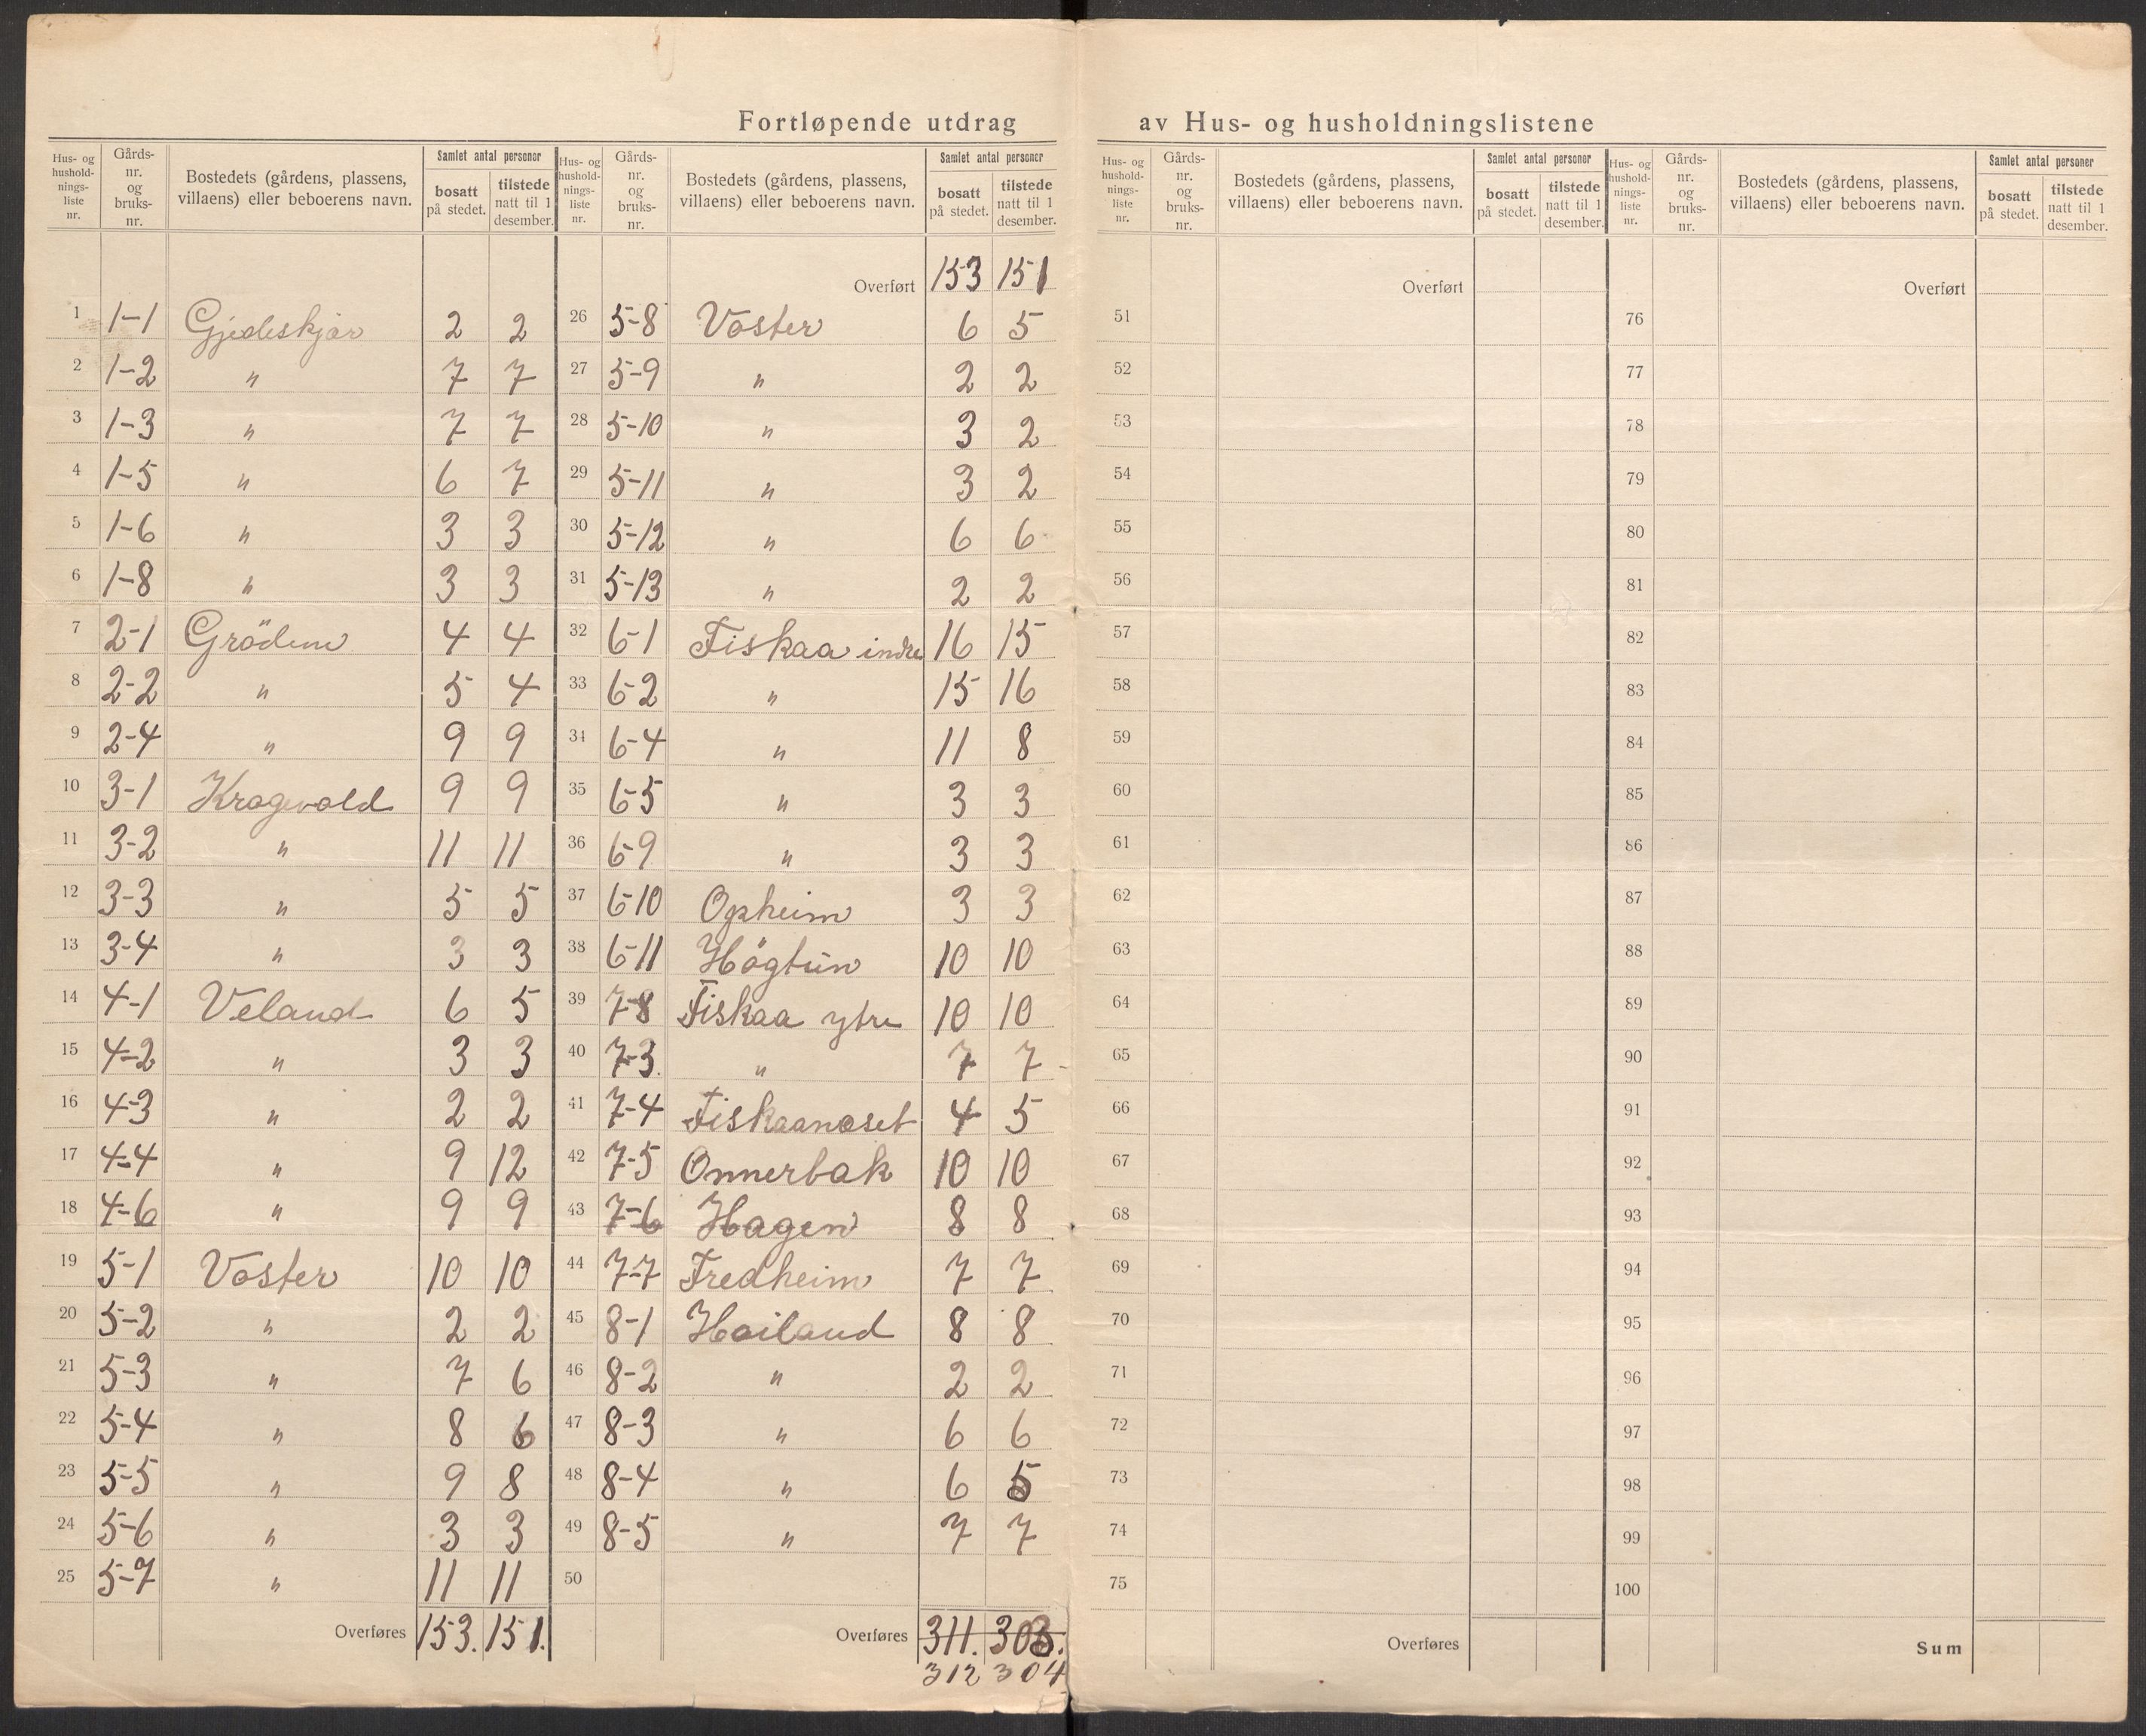 Fortløpende utdrag av Hus- og husholdningslistene
Hus- og husholdnings-liste nr. | Gårds-nr. og bruks-nr. | Bostedets (gårdens, plassens, villaens) eller beboerens navn. | Samlet antal personer | bosatt på stedet. | tilstede natt til 1 desember.
1 1-1 Gjedeskjær 2 2
2 1-2 " 7 7
3 1-3 " 7 7
4 1-5 " 6 7
5 1-6 " 3 3
6 1-8 " 3 3
7 2-1 Grödem 4 4
8 2-2 " 5 4
9 2-4 " 9 9
10 3-1 Kragevold 9 9
11 3-2 " 11 11
12 3-3 " 5 5
13 3-4 " 3 3
14 4-1 Veland 6 5
15 4-2 " 3 3
16 4-3 " 2 2
17 4-4 " 9 12
18 4-6 " 9 9
19 5-1 Voster 10 10
20 5-2 " 2 2
21 5-3 " 7 6
22 5-4 " 8 6
23 5-5 " 9 8
24 5-6 " 3 3
25 5-7 " 11 11
Overføres 153. 151.
Hus- og hushold-nings-liste nr. | Gårds-nr. og bruks-nr. | Bostedets (gårdens, plassens, villaens) eller beboerens navn. | Samlet antal personer | bosatt på stedet. | tilstede natt til 1 desember.
Overført 153 151
26 5-8 Voster 6 5
27 5-9 " 2 2
28 5-10 " 3 2
29 5-11 " 3 2
30 5-12 " 6 6
31 5-13 " 2 2
32 6-1 Fiskaa indre 16 15
33 6-2 " 15 16
34 6-4 " 11 8
35 6-5 " 3 3
36 6-9 " 3 3
37 6-10 Opheim 3 3
38 6-11 Högtun 10 10
39 7-8 Fiskaa ytre 10 10
40 7-3. " 7 7
41 7-4 Fiskaanæset 4 5
42 7-5 Onnerbak 10 10
43 7-6 Hagen 8 8
44 7-7 Fredheim 7 7
45 8-1 Hoiland 8 8
46 8-2 " 2 2
47 8-3 " 6 6
48 8-4 " 6 5
49 8-5 " 7 7
50
Overføres 311. 303.
312 304
Hus- og hushold-nings-liste nr. | Gårds-nr. og bruks-nr. | Bostedets (gårdens, plassens, villaens) eller beboerens navn. | Samlet antal personer | bosatt på stedet. | tilstede natt til 1 desember.
Overført
51
52
53
54
55
56
57
58
59
60
61
62
63
64
65
66
67
68
69
70
71
72
73
74
75
Overføres
Hus- og hushold-nings-liste nr. | Gårds-nr. og bruks-nr. | Bostedets (gårdens, plassens, villaens) eller beboerens navn. | Samlet antal personer | bosatt på stedet. | tilstede natt til 1 desember.
Overført
76
77
78
79
80
81
82
83
84
85
86
87
88
89
90
91
92
93
94
95
96
97
98
99
100
Sum